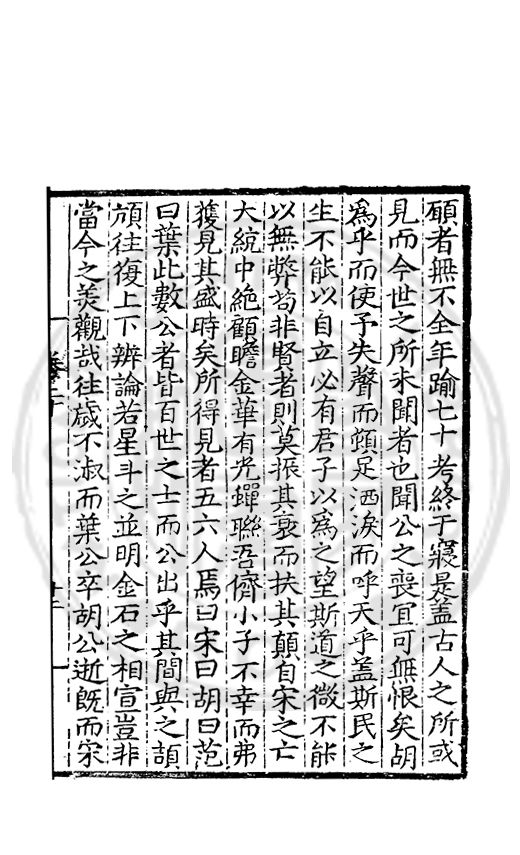 願者無不全年踰七十考終于寢是蓋古人之所或
見而今世之所未聞者也聞公之喪宜可無恨矣胡
為乎而使予失聲而頓足洒淚而呼天乎蓋斯民之
生不能以自立必有君子以為之望斯道之微不能
以無弊苟非賢者則莫振其衰而扶其顛自宋之亡
大統中絶顧瞻金華有光蟬聯吾儕小子不幸而弗
獲見其盛時矣所得見者五六人焉曰宋曰胡曰范
曰葉此數公者皆百世之士而公出乎其間與之頡
頏往復上下辨論若星斗之並明金石之相宣豈非
當今之羙觀哉往歲不淑而葉公卒胡公逝既而宋
卷十